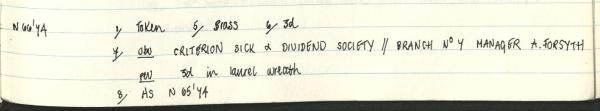 N 66'YA 1, Token 5, Brass 6, 3d
7, obv CRITERION SICK & DIVIDEND SOCIETY // BRANCH Nº Y MANAGER A. FORSYTH
rev 3d in laurel wreath
8, As N 65'YA